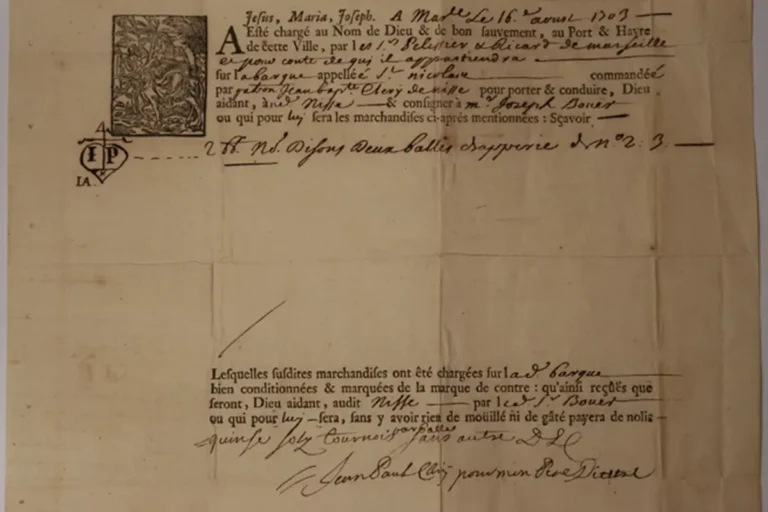 Jesus, Maria, Joseph. A Marlle Le 16e aoust 1703
A Esté chargé au Nom de Dieu & de bon sauvement, au Port & Havre
de cette Ville, par les Srs Pelissier & Ricard de marseille
et pour conte de qui il appartiendra
sur la barque appellée St. nicolas commandée
par patron Jean baptte Clerj de nisse pour porter & conduire, Dieu
aidant, audt Nisse & consigner à mr Joseph Bouer
ou qui pour luy sera les marchandises ci-aprés mentionnées : Sçavoir
IP
IA.
2 Bt. No. Disons Deux balles drapperie de no 2. 3.
Lesquelles susdites marchandises ont été chargées sur lad barque
bien conditionnées & marquées de la marque de contre : qu'ainsi reçûës que
seront, Dieu aidant, audit Nisse par led Sr Bouer
ou qui pour luy sera, sans y avoir rien de moüillé ni de gâté payera de nolis
quinse solz tournois par balle sans autre
Jean Paul Clerj pour mon Pere